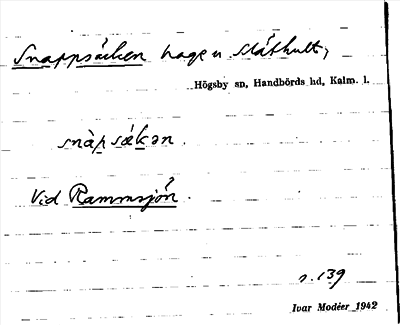 Snappsäcken hage u Släthult,
Högsby sn, Handbörds hd, Kalm. l.
snàp sǽkən.
Vid Rammsjön?.
s. 139
Ivar Modéer 1942